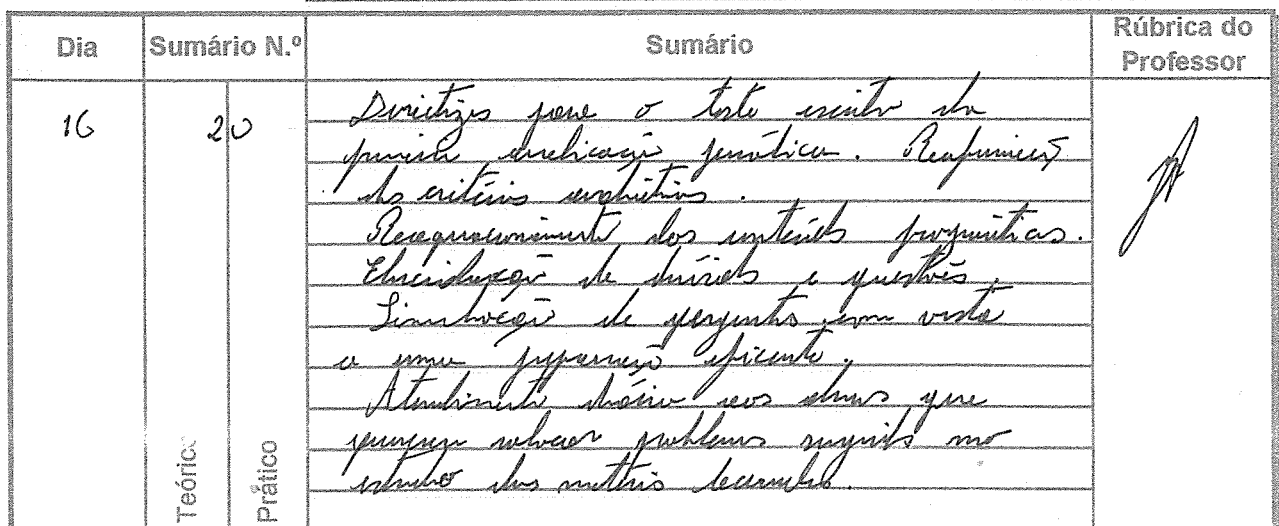 Dia
Sumário N.º
Sumário
Rúbrica do
Professor
16
20
Directizes para o teste escrito da
primeira avaliação periódica. Reafirmação
dos critérios avaliativos.
dos conteúdos programáticos.
Elucidação de dúvidas e questões.
Simulação de perguntas com vista
a uma preparação eficiente.
Atendimento diário aos alunos que
queiram colocar problemas surgidos no
estudo das matérias leccionadas.
Teórico
Prático